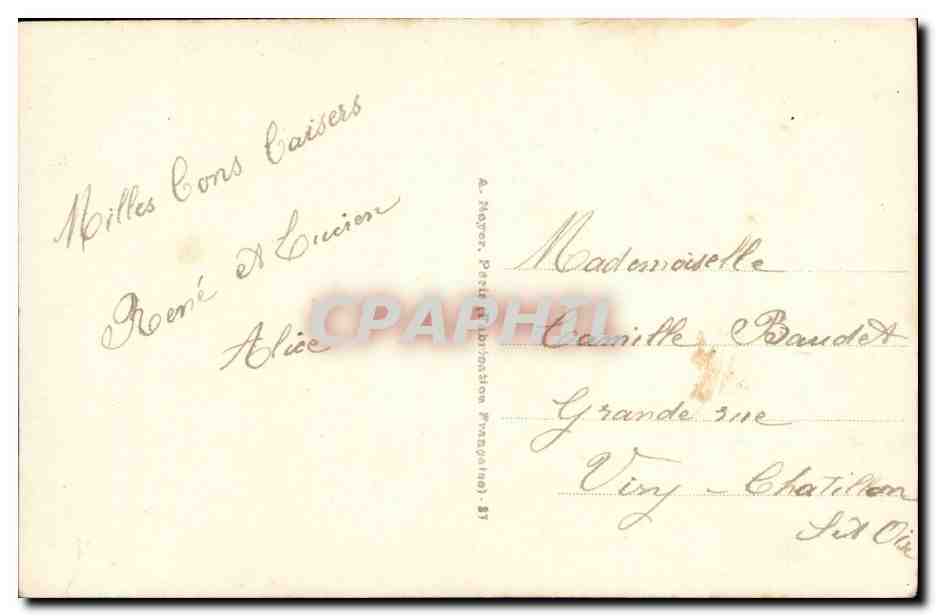 Milles Bons Baisers
René et Lucien
Alice
A. Noyer, Paris (Fabrication Française) - 87
CPAPHIL
Mademoiselle
Camille Baudet
Grande rue
Viry - Chatillon
S et Oise